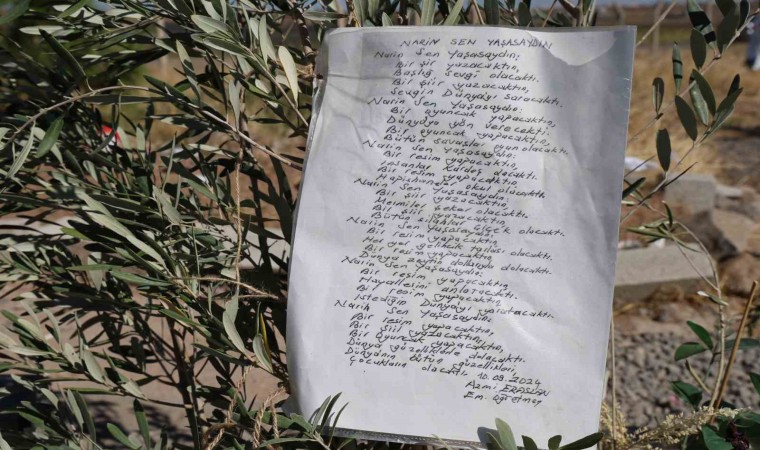 NARİN SEN YAŞASAYDIN
Narin sen yaşasaydın;
Bir şiir yazacaktın,
Başlığı sevgi olacaktı.
Bir şiir yazacaktın,
Sevgin Dünyayı saracaktı.
Narin sen yaşasaydın;
Bir oyuncak yapacaktın,
Dünyaya yön verecekti.
Bir oyuncak yapacaktın,
Bütün savaşlar oyun olacaktı.
Narin sen yaşasaydın;
Bir resim yapacaktın,
İnsanlar kardeş olacaktı.
Bir resim yapacaktın,
Hapishaneler okul olacaktı.
Narin sen yaşasaydın;
Bir şiir yazacaktın,
Mermiler şeker olacaktı.
Bir şiir yazacaktın,
Bütün silahlar çiçek olacaktı.
Narin sen yaşasaydın;
Bir resim yapacaktın,
Her yer gelincik tarlası olacaktı.
Bir resim yapacaktın,
Dünya zeytin dallarıyla dolacaktı.
Narin sen yaşasaydın;
Bir resim yapacaktın,
Hayallerini anlatacaktı.
Bir resim yapacaktın,
İstediğin Dünyayı yaratacaktı.
Narin sen yaşasaydın;
Bir resim yapacaktın,
Bir şiir yazacaktın,
Bir oyuncak yapacaktın,
Dünya güzelliklerle dolacaktı.
Dünyanın bütün güzellikleri,
Çocukların olacaktı. 10.09.2024
Azmi ERASLAN
Em. Öğretmen